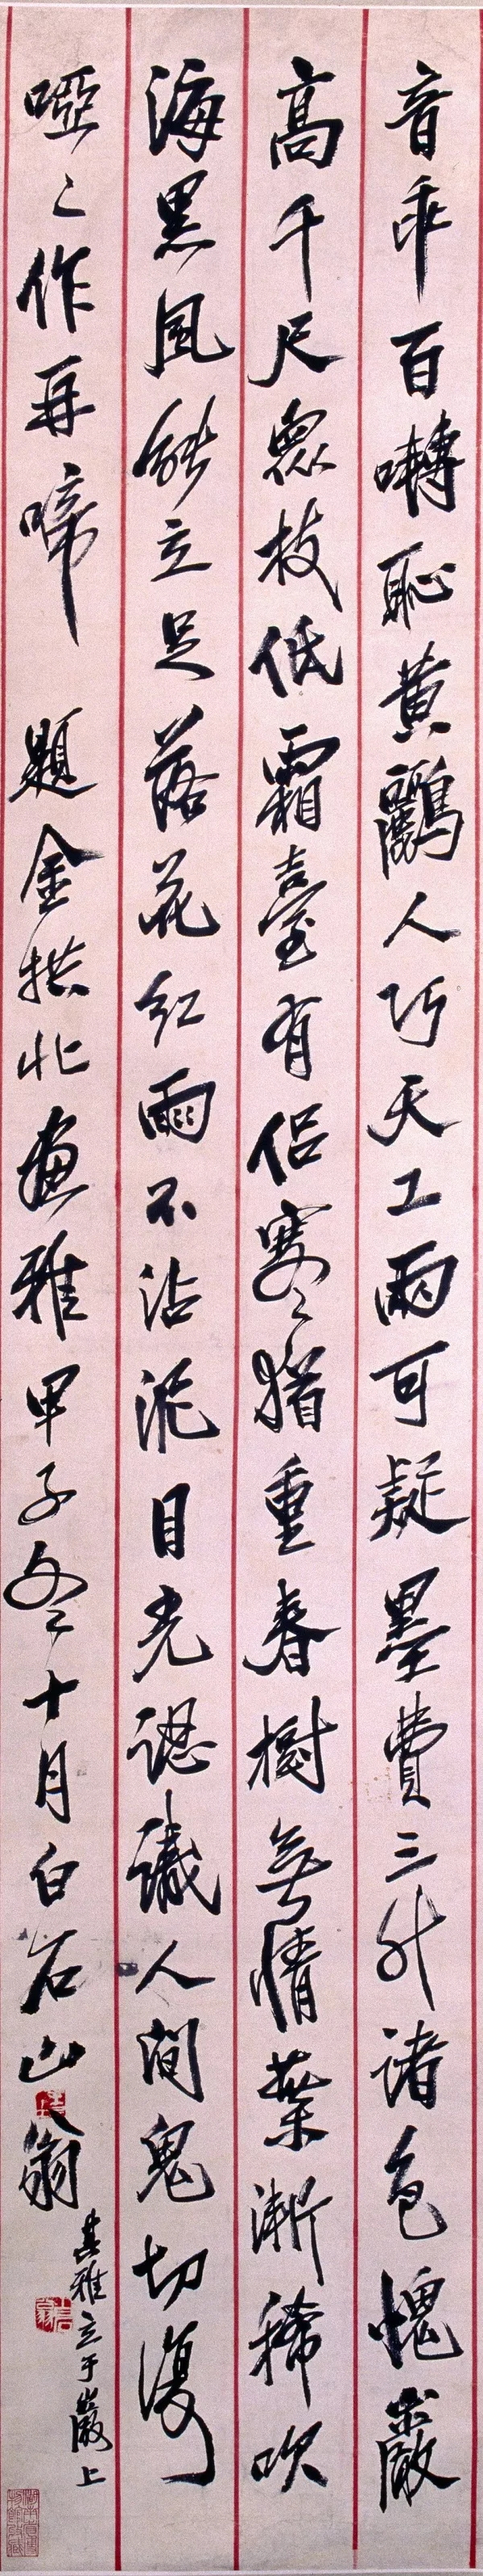 音乖百囀恥黃鸝人巧天工兩可疑墨費三升諸色愧巖
高千尺眾枝低霜臺有侶寒猶重春樹無情葉漸稀吹
海黑風能立足落花紅雨不沾泥目光認識人間鬼切復
啞々作再啼 題金拱北畫雅甲子冬十月白石山翁
其雅立于巖上